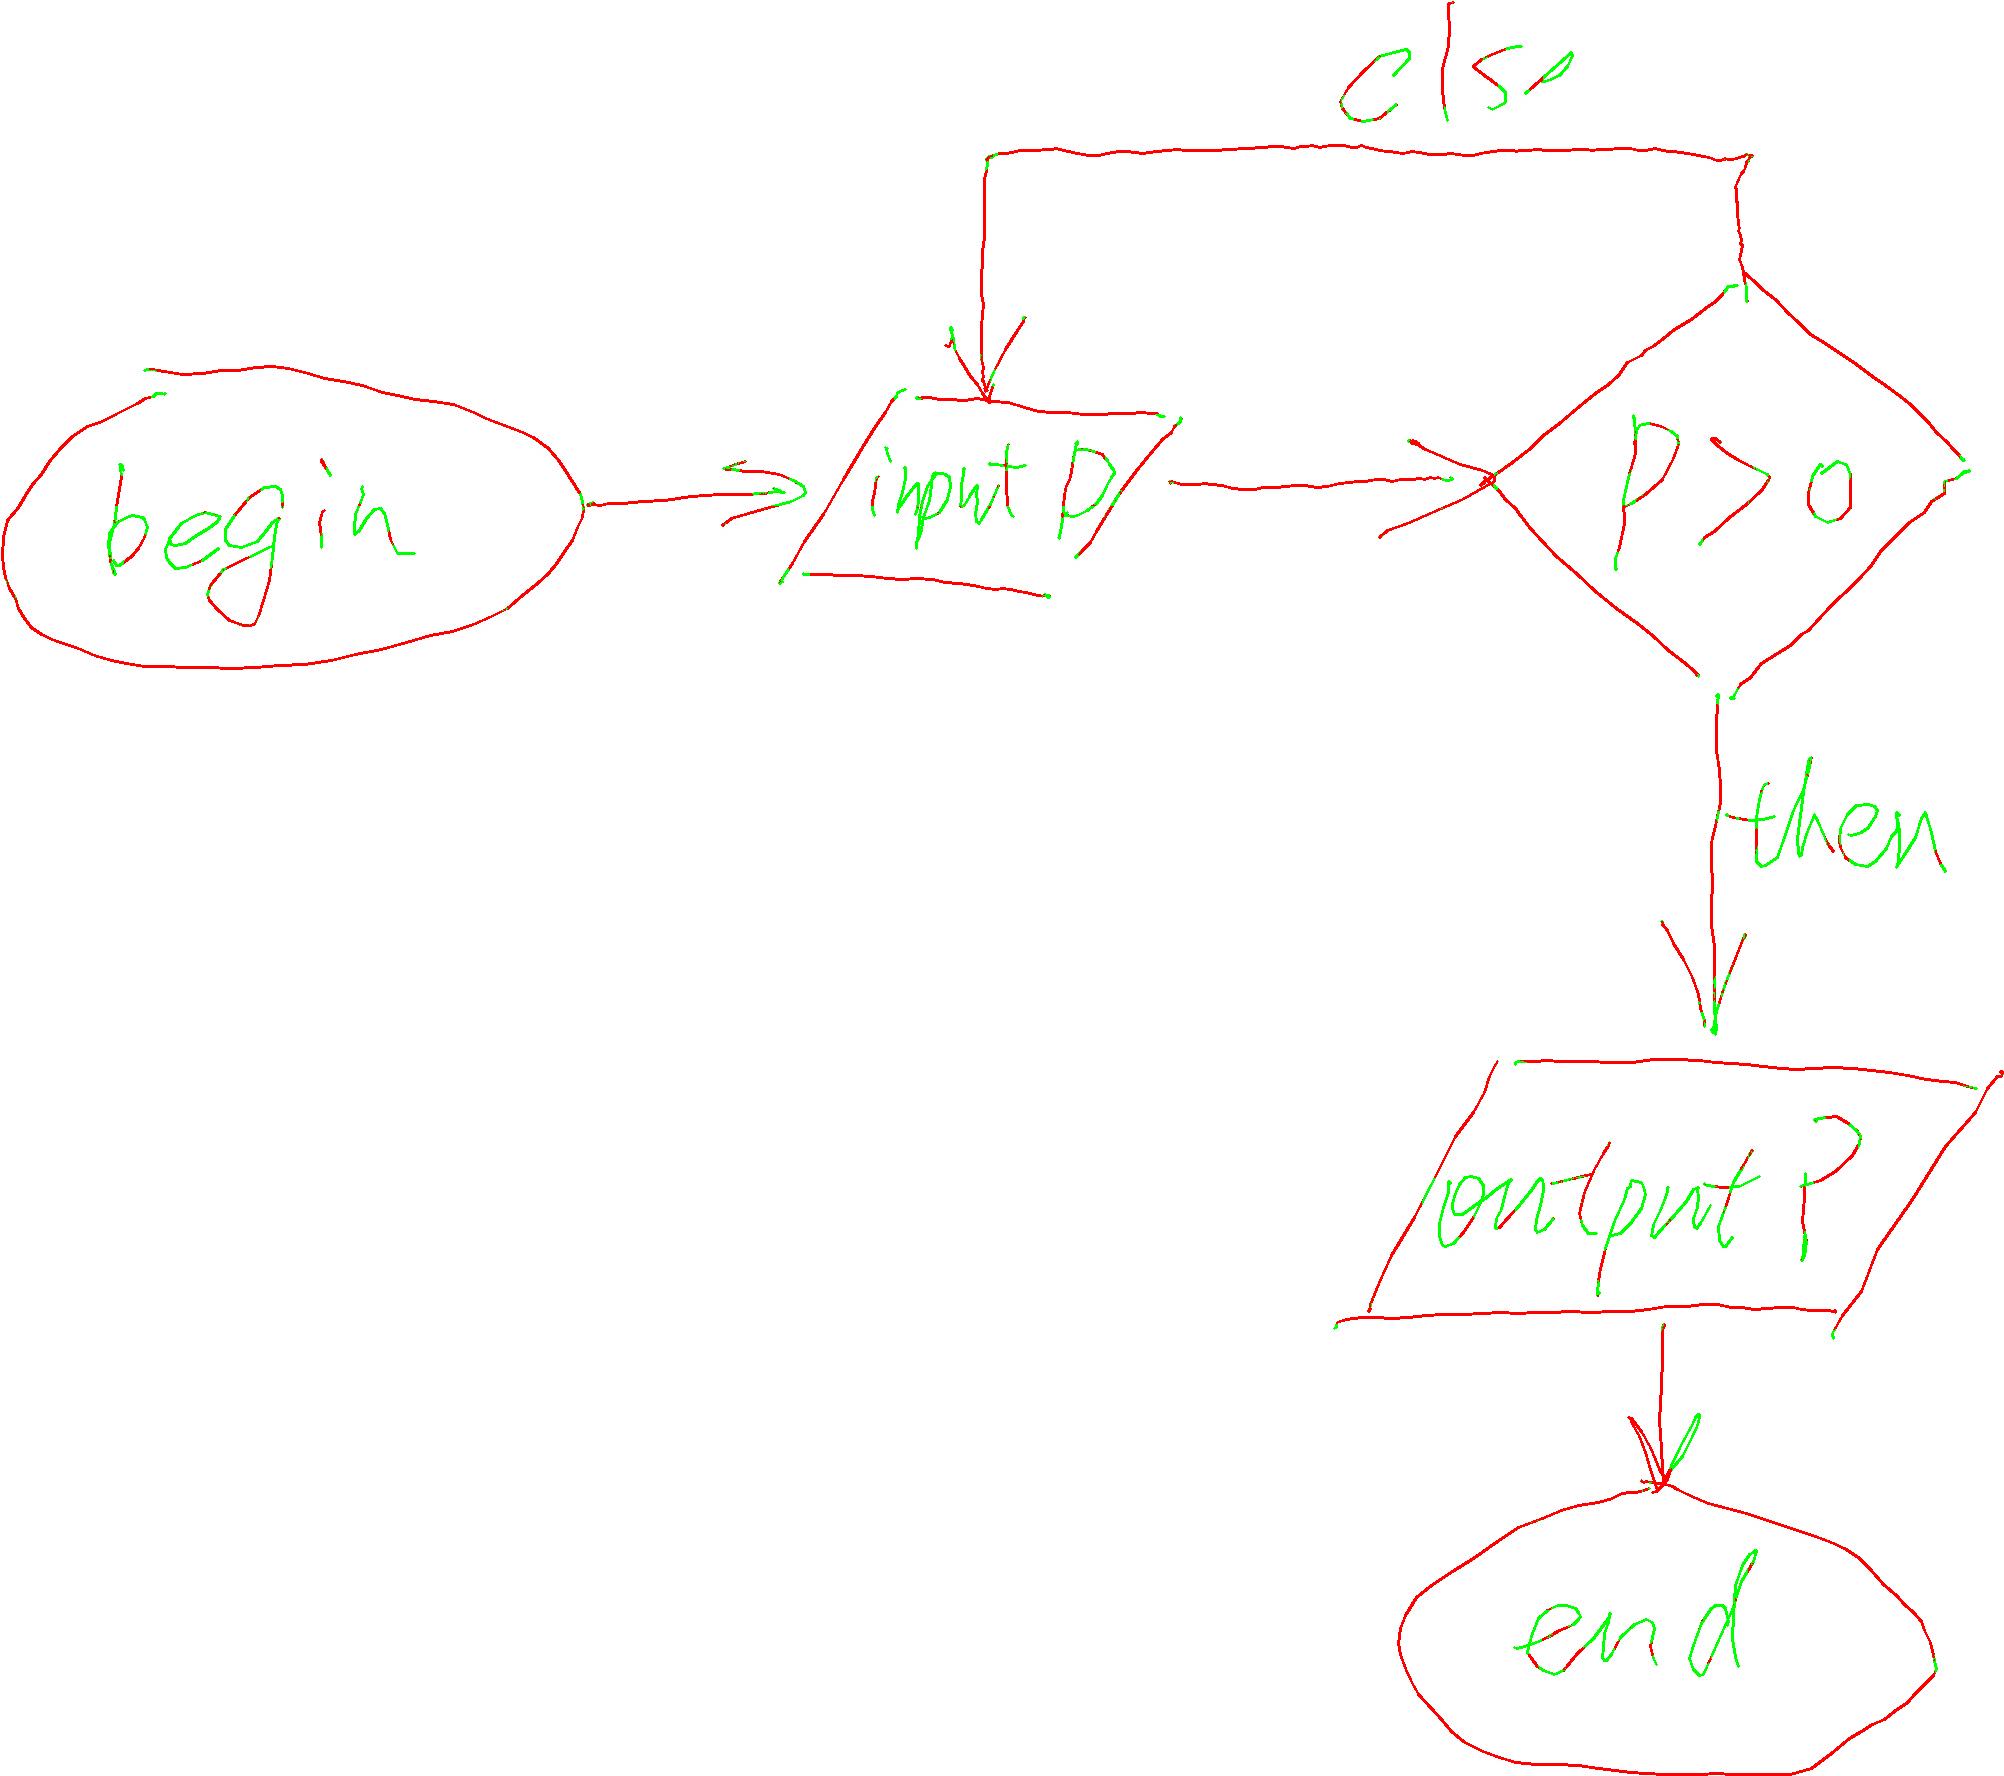 else
begin
input p
p > 0
then
output p
end